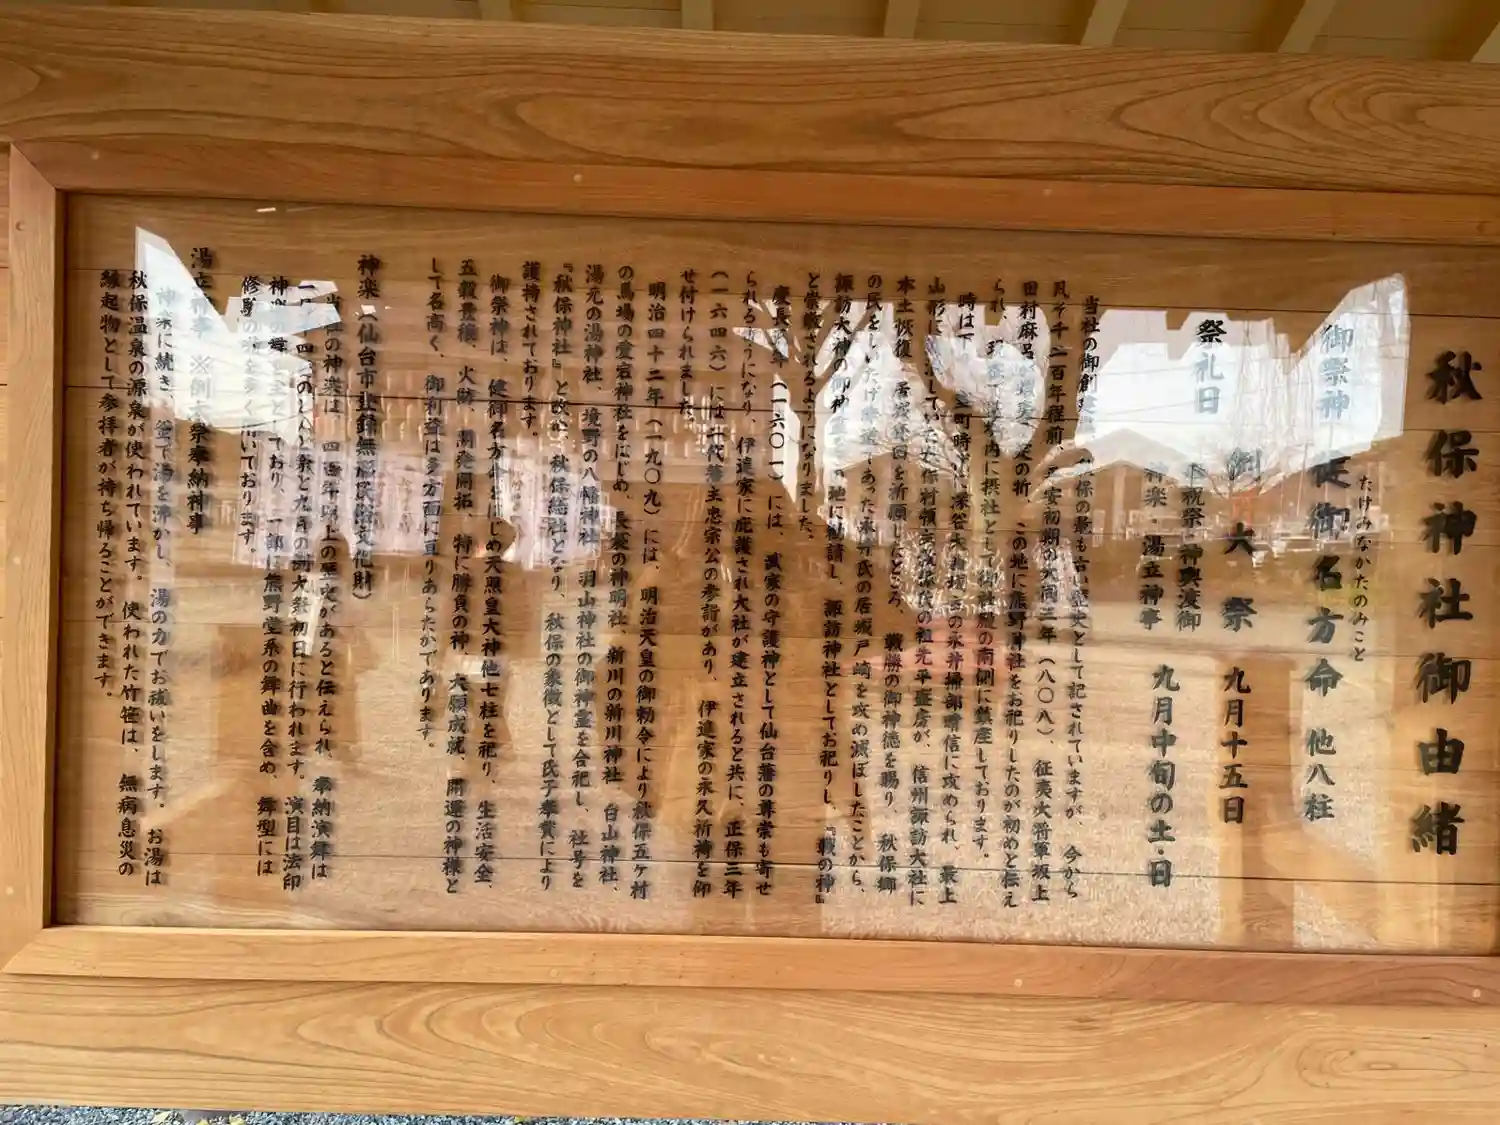 秋保神社御由緒
御祭神
たけみなかたのみこと
健御名方命 他八柱
祭礼日
例大祭 九月十五日
奉祝祭・神輿渡御
神楽・湯立神事 九月中旬の土・日
当社の御創建 秋保の最も古い歴史として記されていますが、今から
凡そ千二百年程前、平安初期の大同三年(八〇八)、征夷大将軍坂上
田村麻呂が蝦夷平定の祈、この地に熊野神社をお祀りしたのが初めと伝え
られ、現在 境内に摂社として御社殿の南側に鎮座しております。
時は 室町時代に深谷 の永井掃部晴信に攻められ、最上
山形に していた秋保村領主秋保氏の祖先平盛房が、信州諏訪大社に
本土恢復、居宮貸回を祈願したところ、戦勝の御神徳を賜り、秋保郷
の民をしいたげ であった永井氏の居城戸崎を攻め滅ぼしたことから、
諏訪大神の御神霊をこの地に勧請し、諏訪神社としてお祀りし、『戦の神』
と崇敬されるようになりました。
慶長 年(一六〇一)には、武家の守護神として仙台藩の尊崇も寄せ
られるようになり、伊達家に庇護され大社が建立されると共に、正保三年
(一六四六)には二代藩主忠宗公の参詣があり、伊達家の永久祈祷を仰
せ付けられました。
明治四十二年(一九〇九)には、明治天皇の御勅令により秋保五ヶ村
の馬場の愛宕神社をはじめ、長袋の神明社、新川の新川神社、白山神社、
湯元の湯神社、境野の八幡神社、羽山神社の御神霊を合祀し、社号を
『秋保神社』と改め、秋保総社となり、秋保の象徴として氏子奉賛により
護持されております。
御祭神は、健御名方命をはじめ天照皇大神他七柱を祀り、生活安全、
五穀豊穣、火防、開発開拓、特に勝負の神、大願成就、開運の神様と
して名高く、御利益は多方面に亘りあらたかであります。
神楽(仙台市登録無形民俗文化財)
当社の神楽は、四百年以上の歴史があると伝えられ、奉納演舞は
四 のどんと祭と九月の例大祭初日に行われます。演目は法印
神楽の舞を主としており、一部に熊野堂系の舞曲を含め、舞型には
修験の形を多く用いております。
湯立神事 ※例大祭奉納神事
神楽に続き、釜で湯を沸かし、湯の力でお祓いをします。お湯は
秋保温泉の源泉が使われています。使われた竹笹は、無病息災の
縁起物として参拝者が持ち帰ることができます。